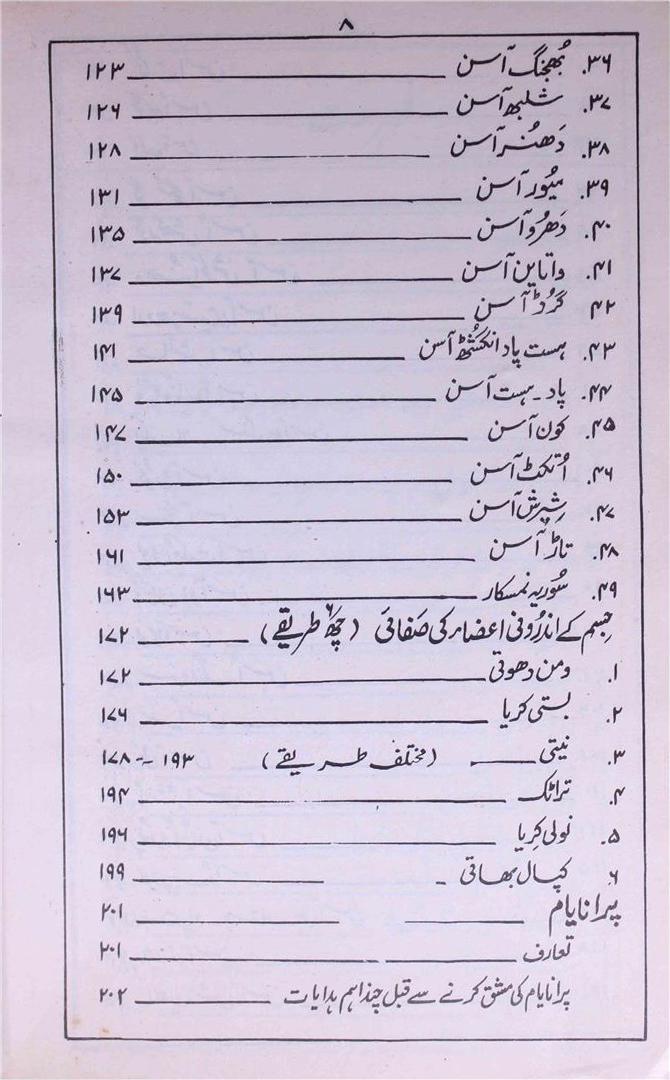 ۸
۳۶. بُھجنگ آسن ۱۲۳
۳۷. شلبھ آسن ۱۲۶
۳۸. دَھنُر آسن ۱۲۸
۳۹. میُور آسن ۱۳۱
۴۰. دَھرُو آسن ۱۳۵
۴۱. واتاین آسن ۱۳۷
۴۲. گرُڈ آسن ۱۳۹
۴۳. ہست پاد انگشُٹھ آسن ۱۴۱
۴۴. پاد۔ہست آسن ۱۴۵
۴۵. کون آسن ۱۴۷
۴۶. اُتکٹ آسن ۱۵۰
۴۷. شِیرش آسن ۱۵۳
۴۸. تاڑ آسن ۱۶۱
۴۹. سُوریہ نمسکار ۱۶۳
جِسم کے اندرُونی اعضاء کی صَفائی (چھ۶ طریقے) ۱۷۲
۱. ومن دھوتی ۱۷۲
۲. بستی کریا ۱۷۶
۳. نیتی (مختلف طریقے) ۱۹۳ -- ۱۷۸
۴. تراٹک ۱۹۴
۵. نولی کِریا ۱۹۶
۶. کپال بھاتی ۱۹۹
پرانایام ۲۰۱
تعارف ۲۰۱
پرانایام کی مشق کرنے سے قبل چند اہم ہدایات ۲۰۲